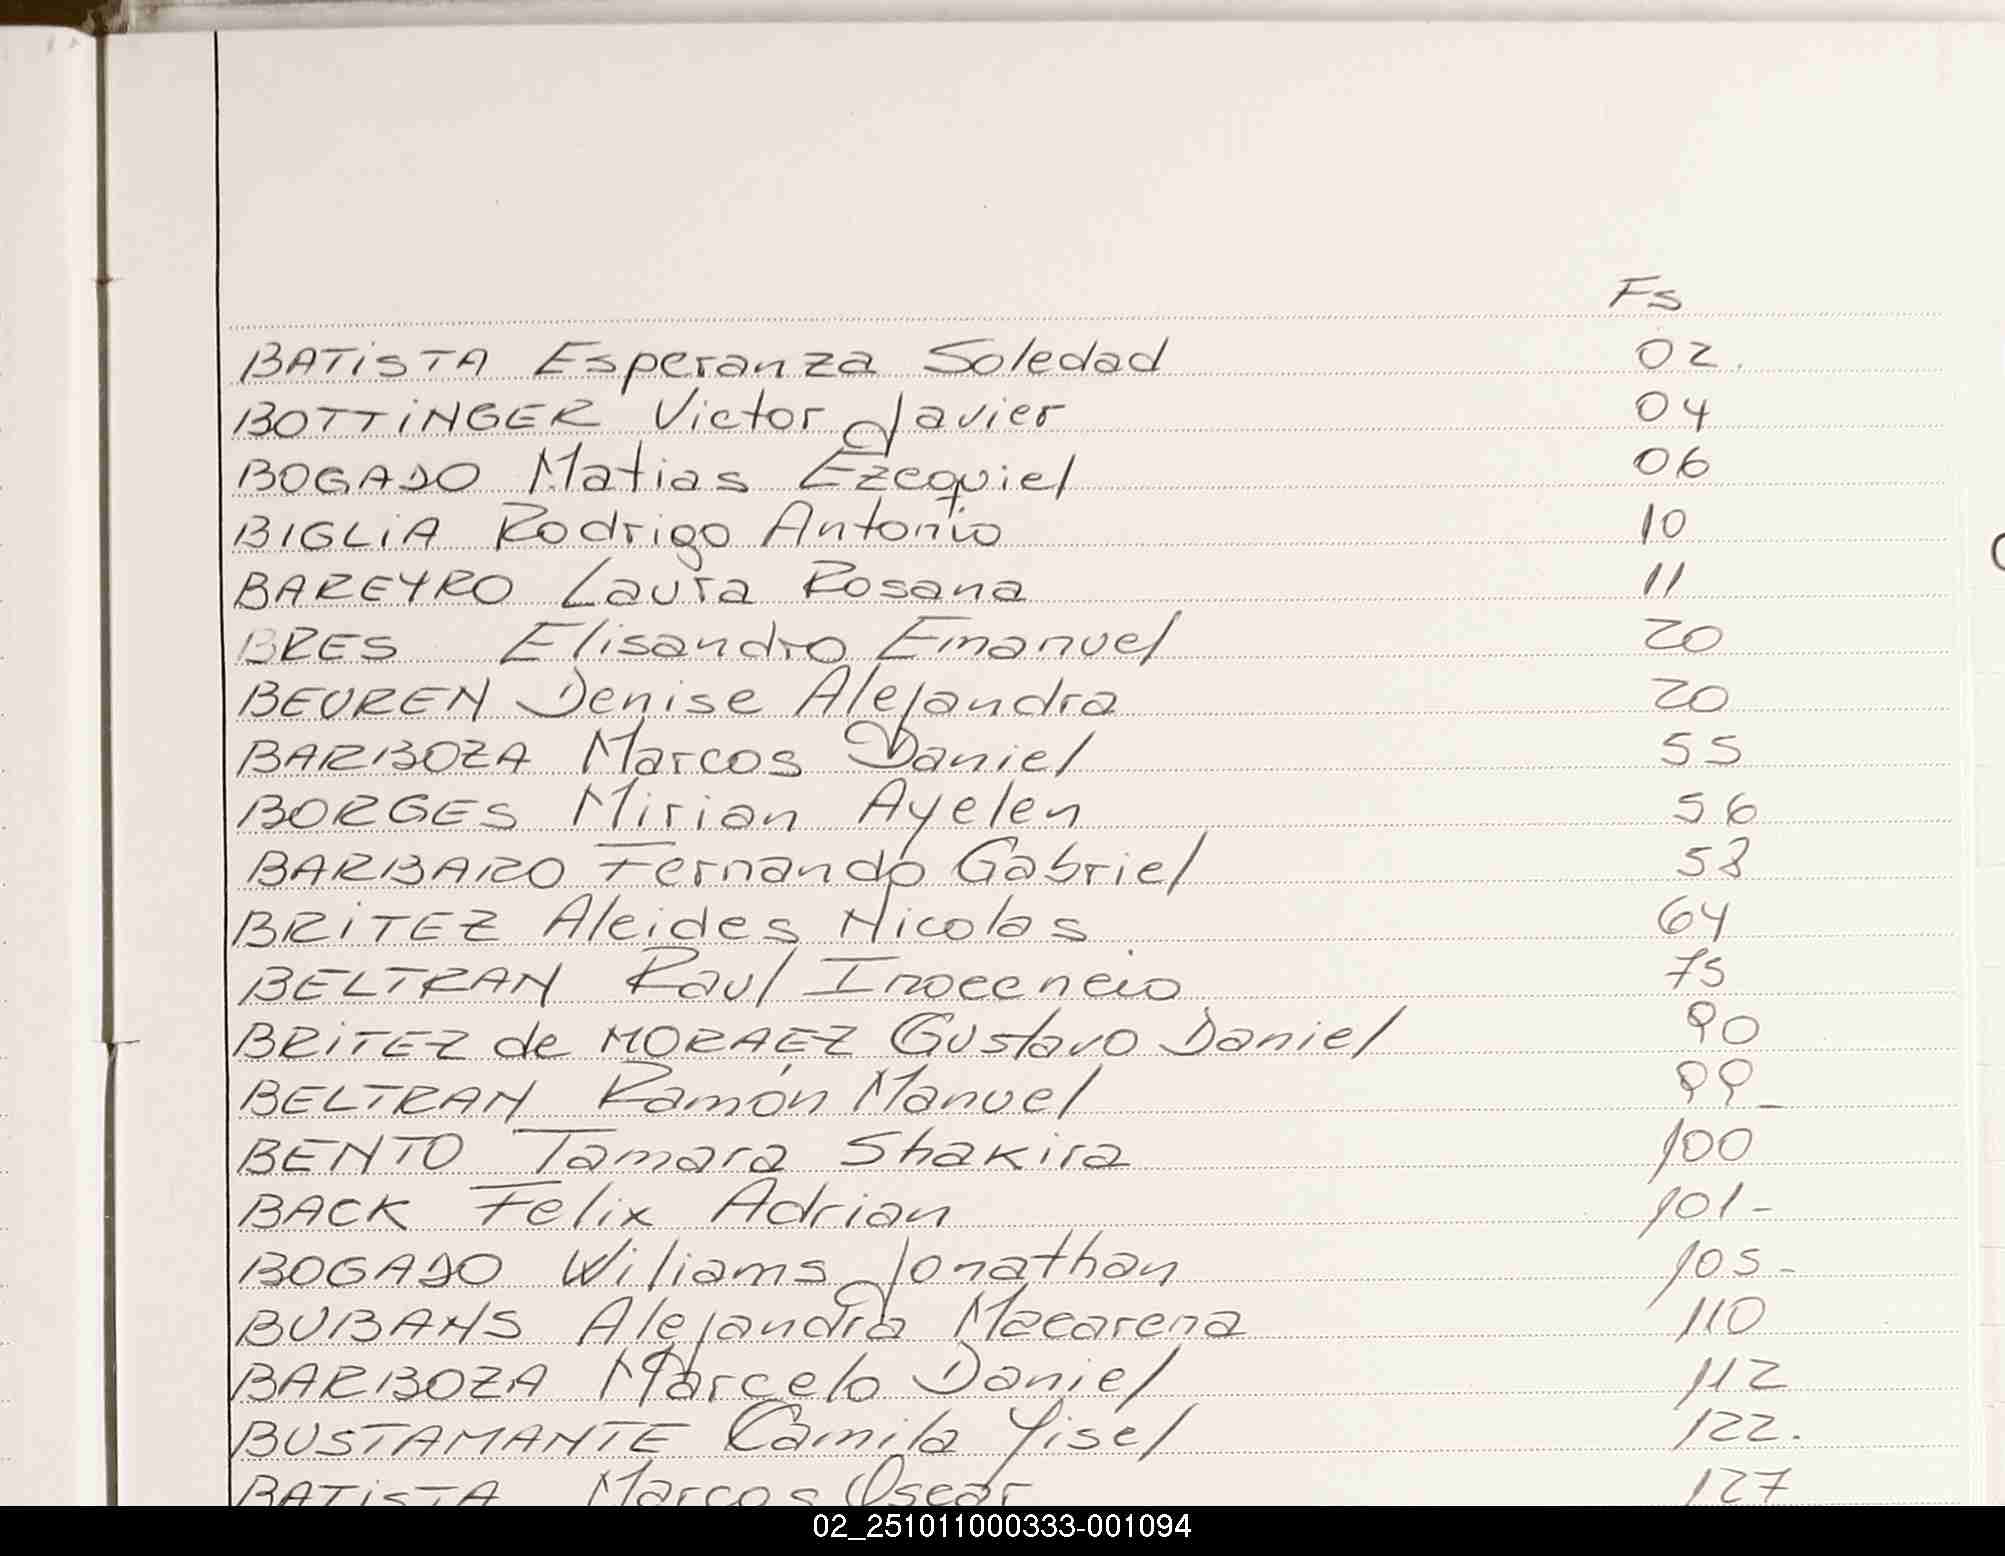 Fs
BATiSTA Esperanza Soledad 02.
BOTTiNGER Victor Javier 04
BOGADO Matias Ezequiel 06
BIGLiA Rodrigo Antonio 10
BAREYRO Laura Rosana 11
BRES Elisandro Emanuel 20
BEUREN Denise Alejandra 20
BARBOZA Marcos Daniel 55
BORGES Mirian Ayelen 56
BARBARO Fernando Gabriel 58
BRiTEZ Aleides Nicolas 64
BELTRAN Raul Inocencio 75
BRiTEZ de MORAEZ Gustavo Daniel 90
BELTRAN Ramón Manuel 99-
BENTO Tamara Shakira 100
BACK Felix Adrian 101-
BOGADO Wiliams Jonathan 105-
BUBANS Alejandra Macarena 110
BARBOZA Marcelo Daniel 112
BUSTAMANTE Camila Yisel 122.
BATiSTA Marcos Oscar 127
02_251011000333-001094